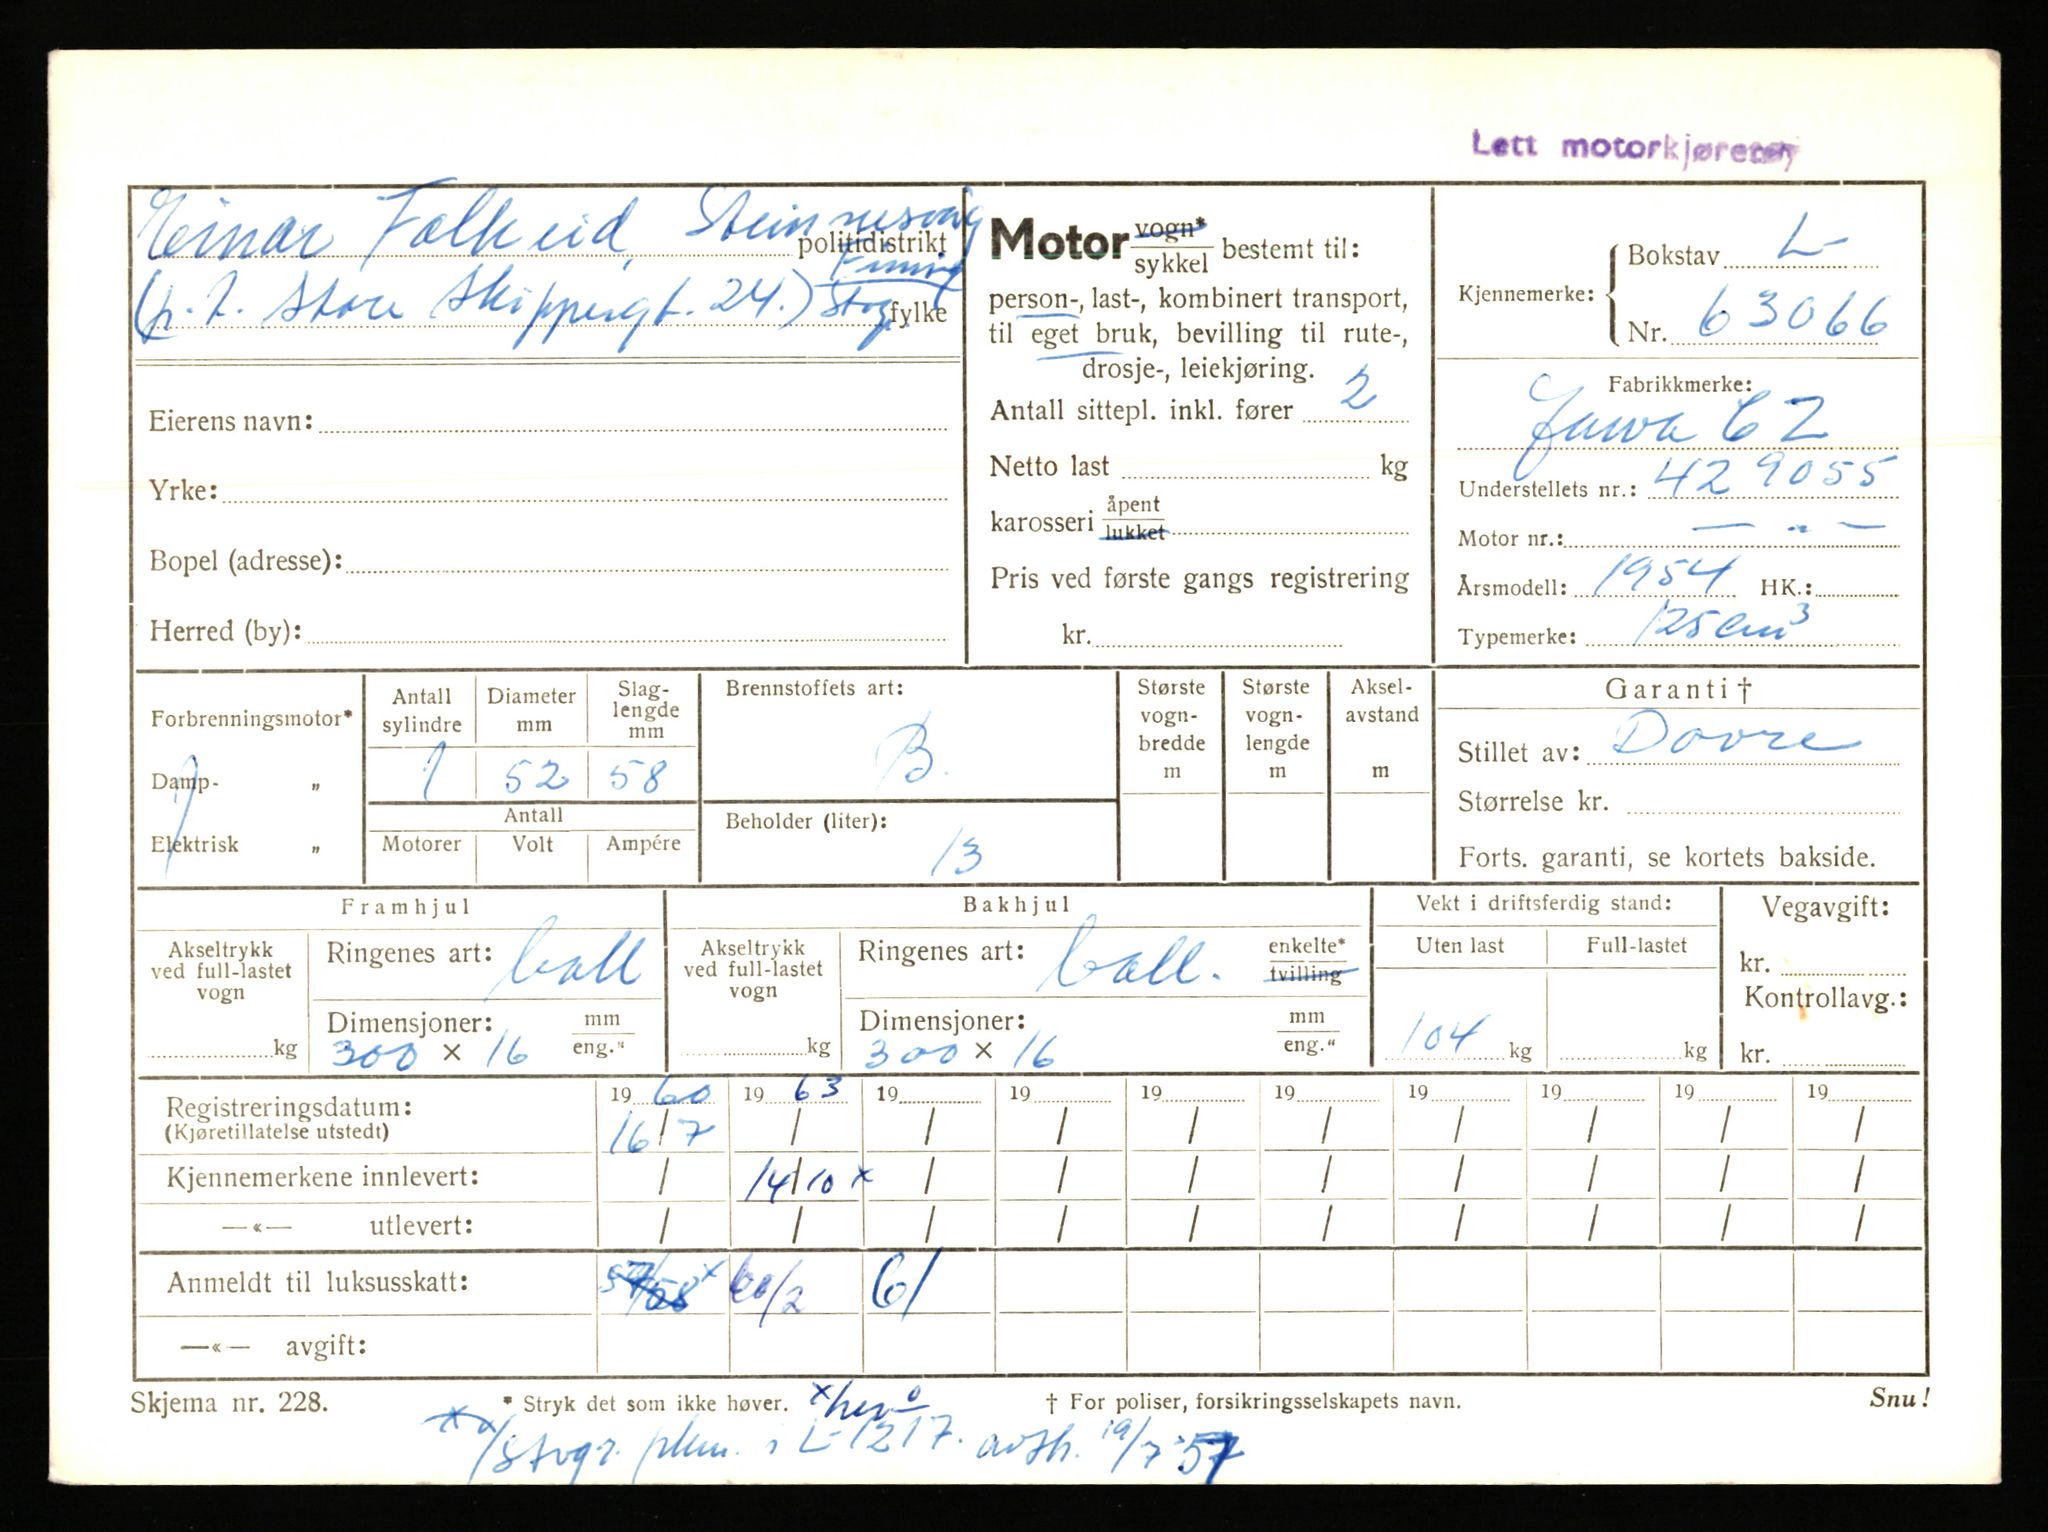 Lett motorkjøretøy
Einar Falkeid, Steinnesvåg
politidistrikt
(p.t. Store Skippergt. 24.) Stvgr.
fylke
Eierens navn:
Yrke:
Bopel (adresse):
Herred (by):
Motor vogn* / sykkel bestemt til:
person-, last-, kombinert transport,
til eget bruk, bevilling til rute-,
drosje-, leiekjøring.
Antall sittepl. inkl. fører 2
Netto last kg
karosseri åpent / lukket
Pris ved første gangs registrering
kr.
Kjennemerke: Bokstav L-
Nr. 63066
Fabrikkmerke:
Jawa CZ
Understellets nr.: 429055
Motor nr.: — „ —
Årsmodell: 1954 HK.:
Typemerke: 125 cm³
Forbrenningsmotor*
Damp- „
Elektrisk „
Antall sylindre Diameter mm Slag-lengde mm
1 52 58
Antall
Motorer Volt Ampére
Brennstoffets art:
B.
Beholder (liter):
13
Største vogn-bredde m
Største vogn-lengde m
Aksel-avstand m
Garanti †
Stillet av: Dovre
Størrelse kr.
Forts. garanti, se kortets bakside.
Framhjul
Akseltrykk ved full-lastet vogn kg
Ringenes art: ball
Dimensjoner: mm / eng.“
300 × 16
Bakhjul
Akseltrykk ved full-lastet vogn kg
Ringenes art: ball. enkelte* / tvilling
Dimensjoner: mm / eng.“
300 × 16
Vekt i driftsferdig stand:
Uten last Full-lastet
104 kg kg
Vegavgift:
kr.
Kontrollavg.:
kr.
Registreringsdatum: 19 60 19 63 19 19 19 19 19 19 19 19
(Kjøretillatelse utstedt) 16/7 / / / / / / / / /
Kjennemerkene innlevert: / 14/10 x / / / / / / / /
—«— utlevert: / / / / / / / / / /
Anmeldt til luksusskatt: 60/2 61
—«— avgift:
Skjema nr. 228.
* Stryk det som ikke høver.
† For poliser, forsikringsselskapets navn.
Snu!
i L-1217. avsk. 19/7 57